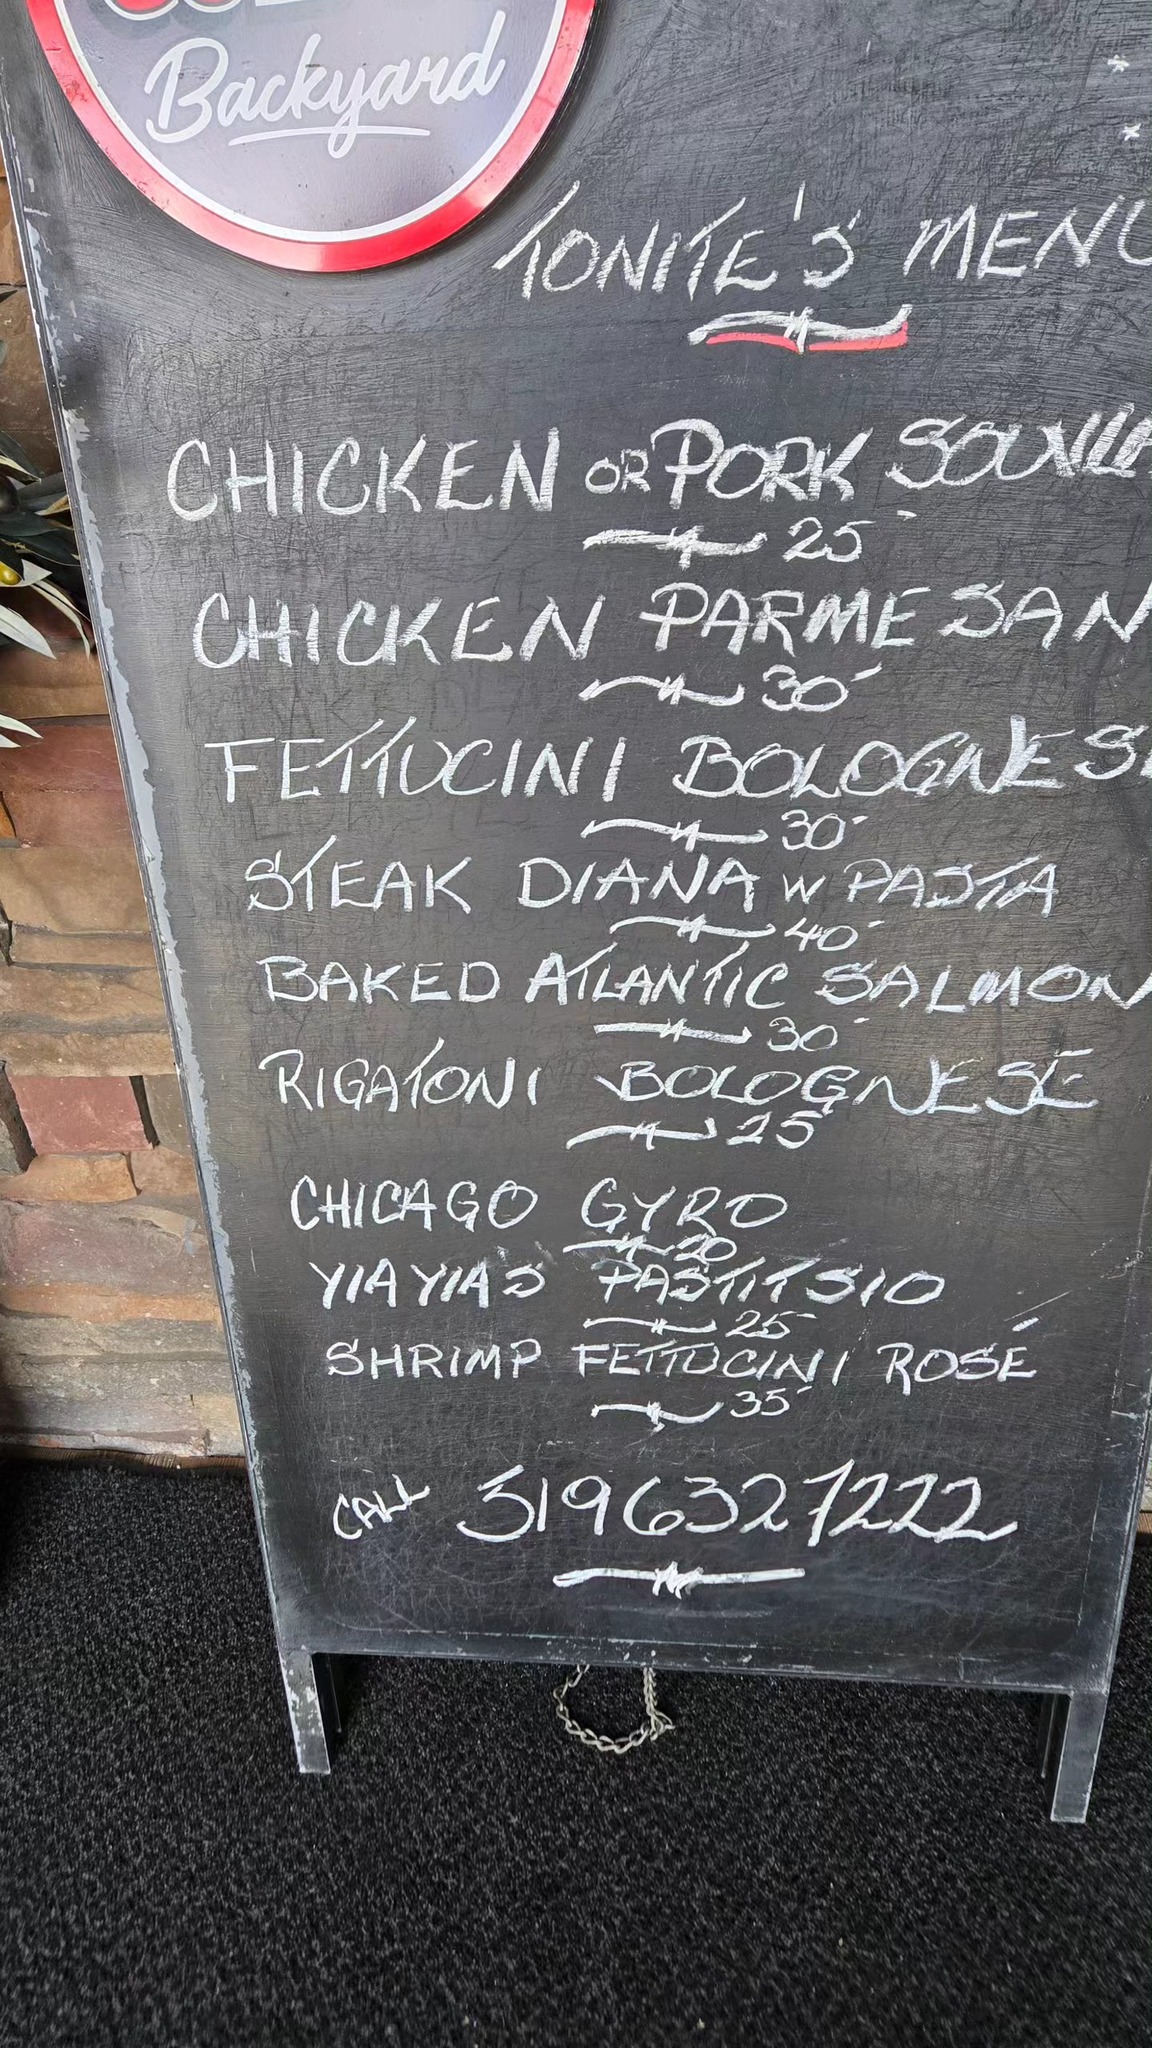 Backyard
TONITE'S MENU
CHICKEN OR PORK
25
CHICKEN PARMESAN
30
FETTUCINI BOLOGNESE
30
STEAK DIANA W PASTA
40
BAKED ATLANTIC SALMON
30
RIGATONI BOLOGNESE
25
CHICAGO GYRO
20
YIAYIA'S PASTITSIO
25
SHRIMP FETTUCINI ROSÉ
35
CALL 3196327222